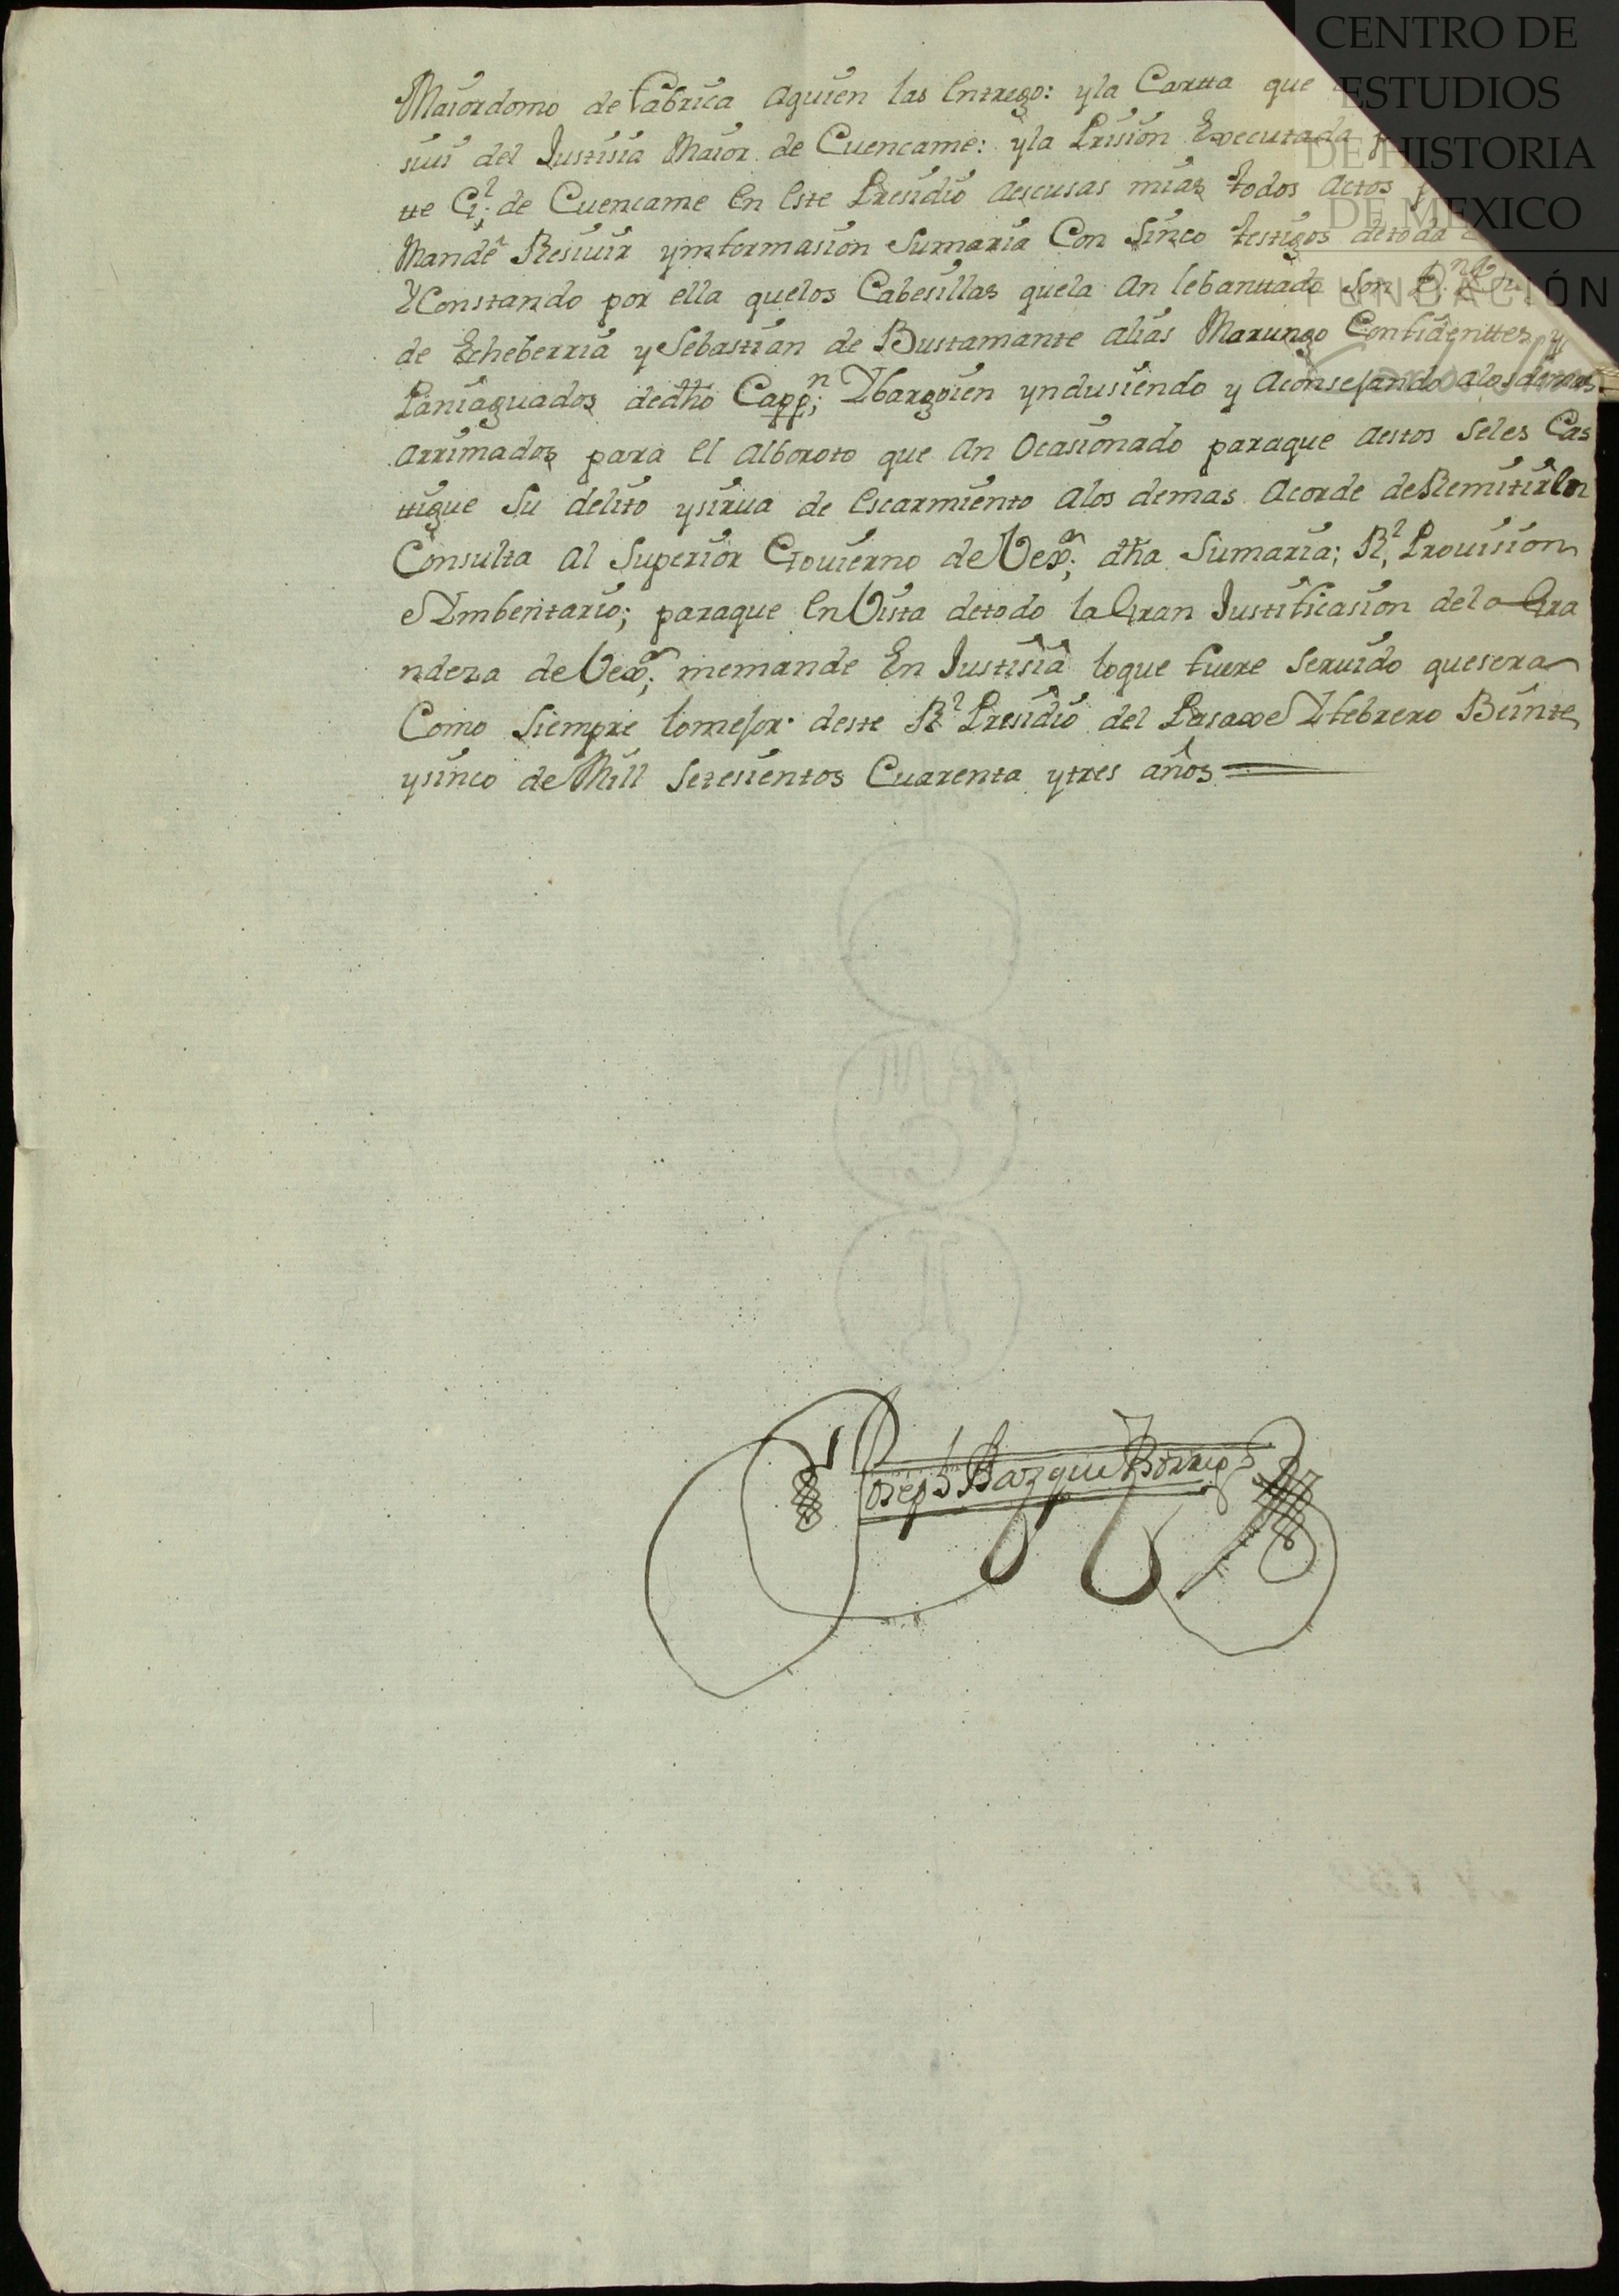 CENTRO DE
ESTUDIOS
DE HISTORIA
DE MEXICO
FUNDACIÓN
Maiordomo de fabrica aquien las Entrego: yla Cartta que
siui del Justisia Maior de Cuencame: yla Prision Executada
tte Gl. de Cuencame En Este Presidio aescusas mias todos actos
Mande Resiuir ynformasion Sumaria Con Sinco testigos detoda
YConstando por ella quelos Cabesillas quela an lebanttado Son
de Echeberria y Sebastian de Bustamante alias Marungo Confidenttes y
Paniaguados dedho Cappn; Ybargoien yndusiendo y aconsejando alos demas
arrimados para El alboroto que an Ocasionado paraque aestos Seles Cas
ttigue Su delito ysirua de Escarmiento alos demas acorde deRemitir En
Consulta al Superior Gouierno deVexa; dha Sumaria; Rl Prouision
eYmbentario; paraque EnVista detodo laGran Justificasion dela Gra
ndeza deVexa; memande En Justisia loque fuere Seruido quesera
Como Siempre lomejor. deste Rl Presidio del Pasaxe Yfebrero Beinte
ysinco deMill Setesientos Cuarenta ytres años
Joseph Bazque Borrego